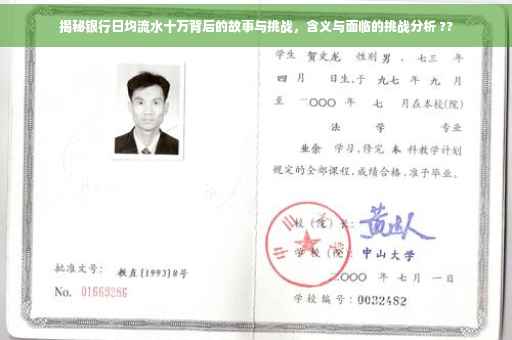 揭秘银行日均流水十万背后的故事与挑战，含义与面临的挑战分析 ??
学生 贺文龙 性别 男 、七三 年
四 月 日生,于 九七 年 九 月
至 二〇〇〇 年 七 月在本校(院)
法 学 专业
业余 学习,修完 本 科教学计划
规定的全部课程,成绩合格,准予毕业。
校(院)长:
学 校(院): 中山大学
批准文号: 教直[1993]8号
二〇〇〇 年 七 月 一 日
No. 01669286
学校编号: 0032482